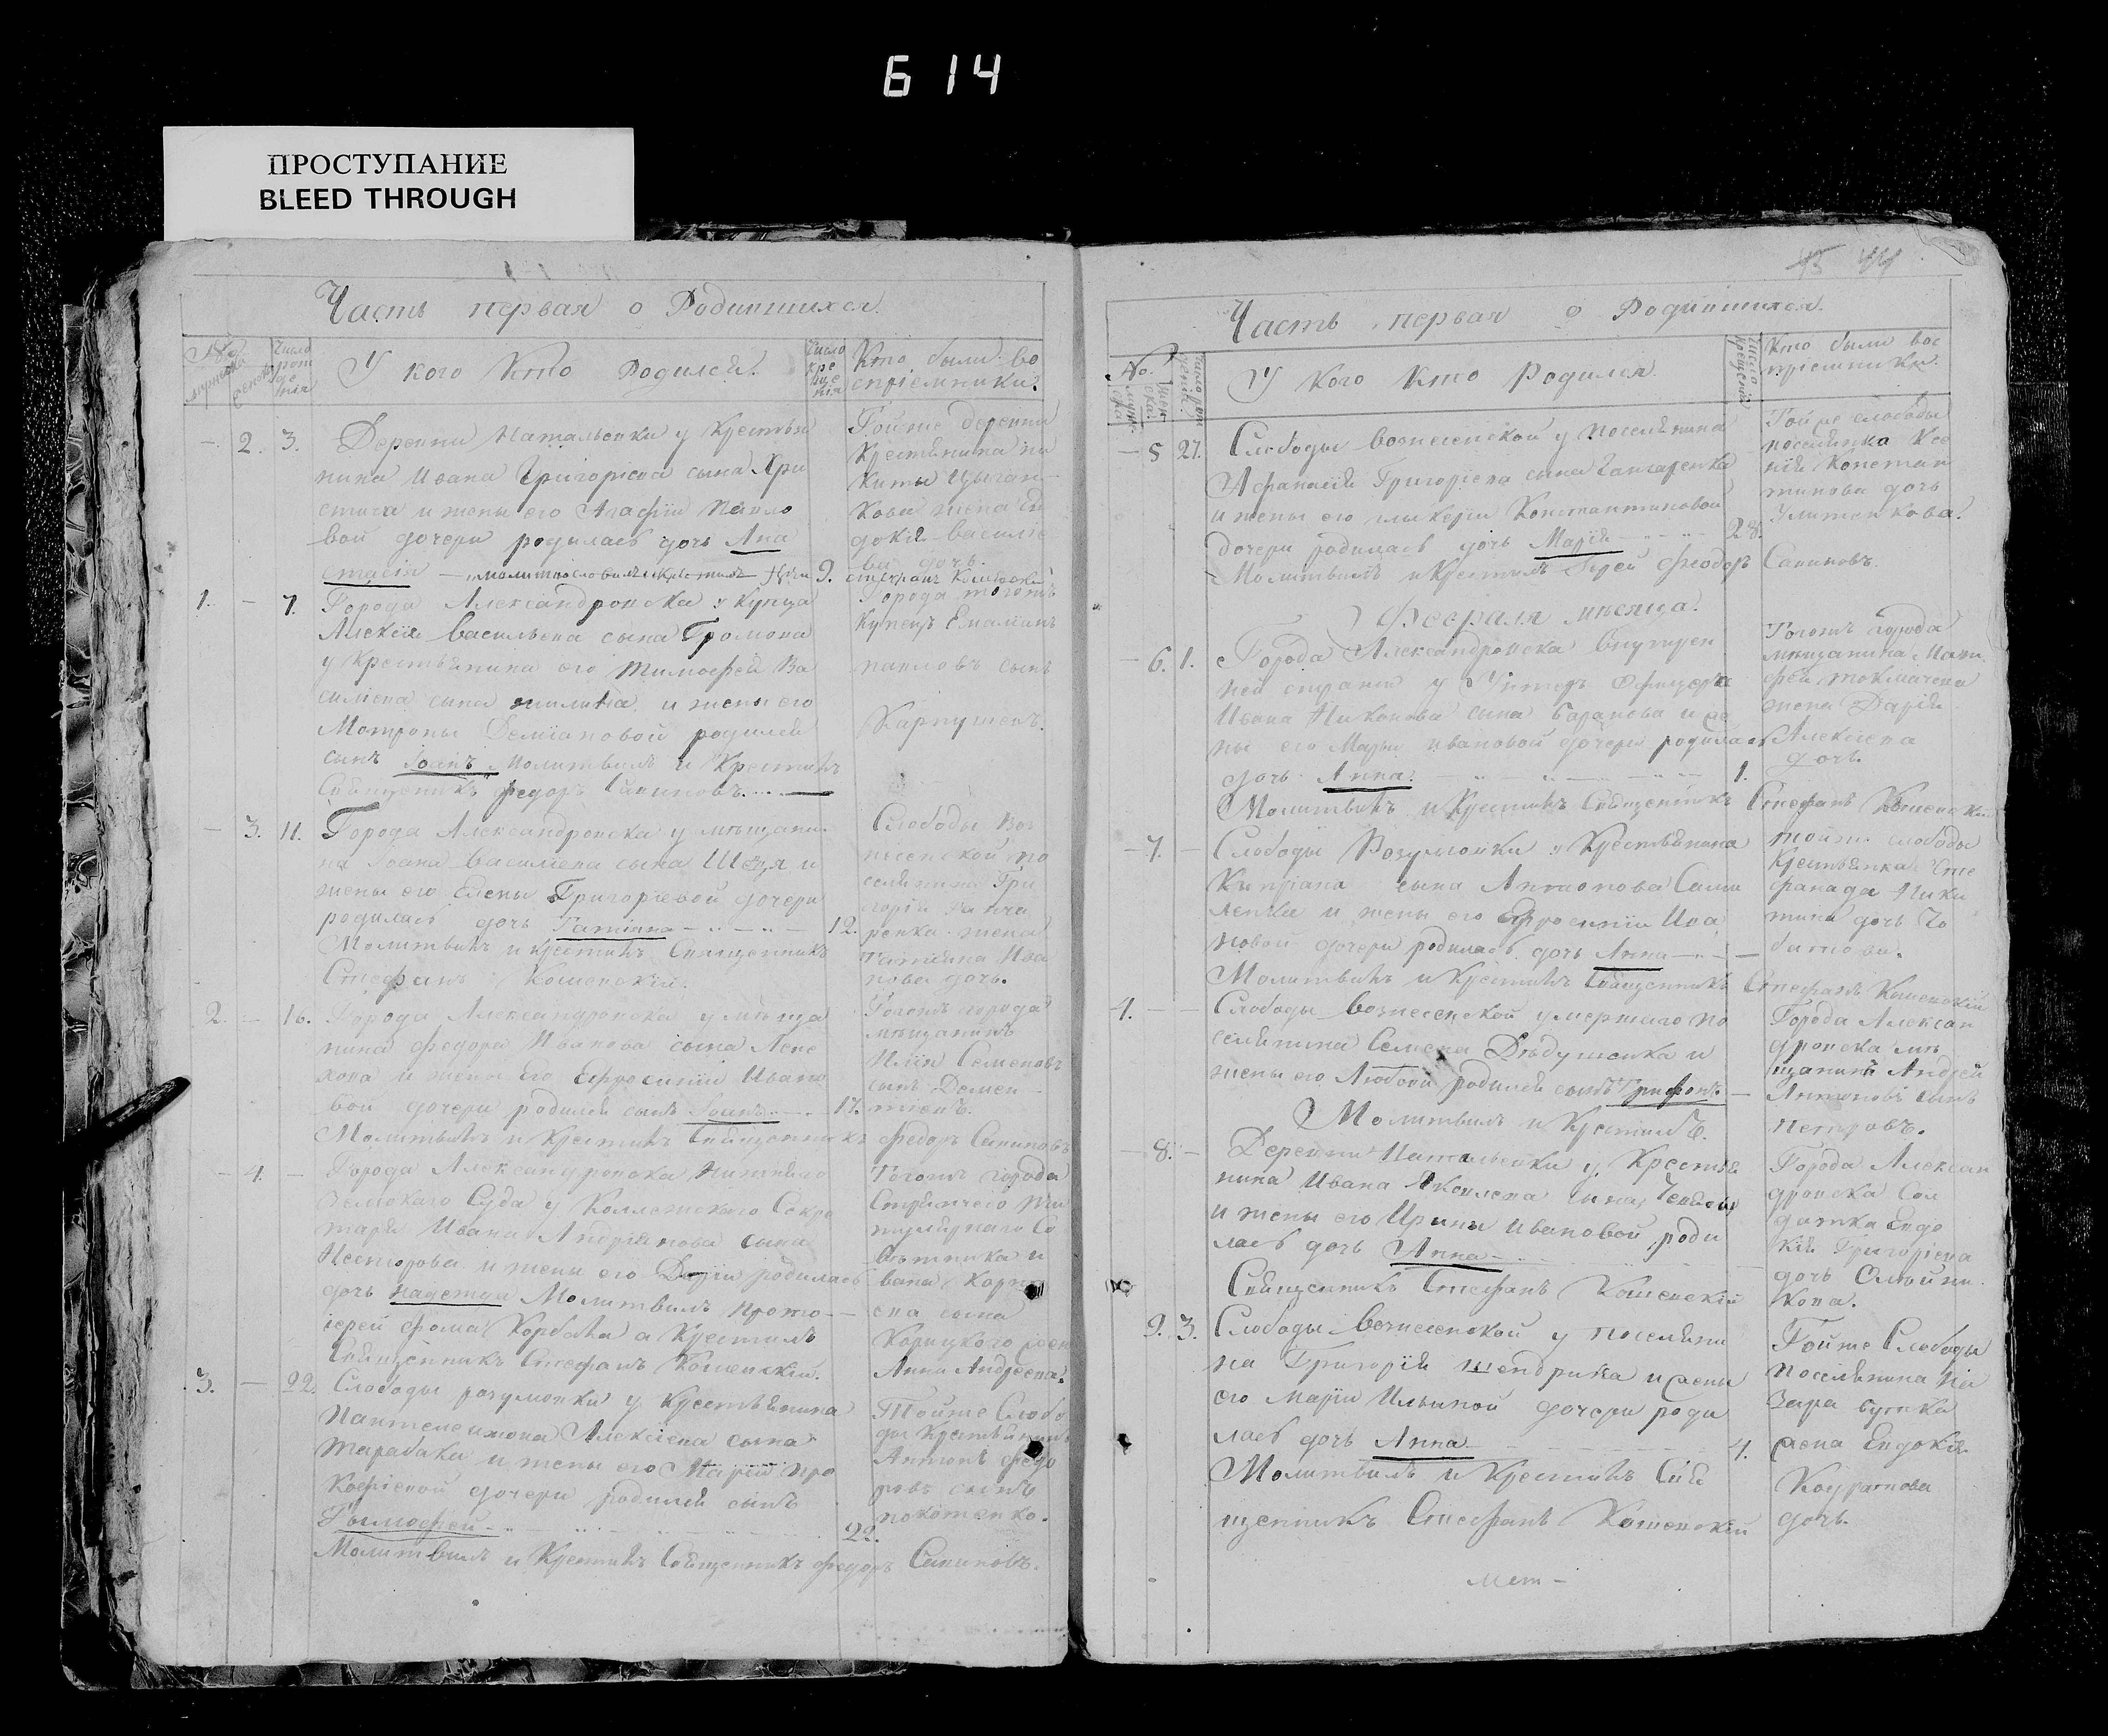 614
ПРОСТУПАНИЕ
BLEED THROUGH
Часть первая о Родившихся.
№
Число рожденія
У кого Кто Родился.
Число крещенія
Кто были во
спріемники?
- 2. 3.
Деревни Натальевки у Крестья
нина Ивана Григорьева сына Хри
и жены его Агафіи Павло
вой дочери родилась дочь Ана
стасія
9.
Тойже деревни
Крестьянина Ни
киты Цыган
кова жена Ев
докія василіе
ва дочь.
1. - 7.
Города Александровска у купца
Алексія васильева сына Громова
у Крестьянина его Тимофея Ва
силіева сына и жены его
Мотроны Деміановой родился
сынъ Іоанъ Молитвилъ и Крестилъ
Священникъ федоръ Сапиновъ.
Города тогожъ
Купецъ
павловъ сынъ
Карпушенъ.
- 3. 11.
Города Александровска у мѣщани
на Іоана василіева сына и
жены его Елены Григоріевой дочери
родилась дочь Татіана
12.
Молитвилъ и крестилъ Священникъ
Стефанъ Кошевскій.
Слободы Воз
несенской по
селянина Гри
горія Ганча
ренка жена
Татіяна Ива
нова дочь.
2. - 16.
Города Александровска у мѣща
нина федора Иванова сына
и жены Его Ефросиніи Ивано
вой дочери родился сынъ Іоанъ
17.
Молитвилъ и Крестилъ Священникъ федоръ Сапиновъ
Тогожъ города
мѣщанинъ
Иліи Семеновъ
сынъ Демен
тіевъ.
- 4. -
Города Александровска Нижняго
Земскаго Суда у Коллежскаго Секре
таря Ивана Андріянова сына
Несторова и жены его Даріи родилась
дочь надежда Молитвилъ прото
іерей фома Корбача а Крестилъ
Священникъ Стефанъ Кошевскій.
Тогожъ города
Стряпчего Ти
тулярнаго Со
вѣтника и
вана Карпе
ева сына
Корицкого жена
Анна Андреева.
3. - 22.
Слободы розумовки у Крестьянина
Пантелеимона Алексіева сына
Тарабаки и жены его Маріи про
кофіевой дочери родился сынъ
Тимофей
22.
Молитвилъ и Крестилъ Священникъ федоръ Сапиновъ.
Тойже Слобо
ды Крестьянинъ
Антонъ федо
ровъ сынъ
покотенко.
45 44
Часть первая о Родившихся.
№.
У кого Кто Родился
Число крещенія
Кто были вос
пріемники.
- 5 27.
Слободы вознесенской у поселянина
Афанасія Григоріева сына Ганчаренка
и жены его гликеріи Константиновой
дочери родилась дочь Марія
28.
Молитвилъ и Крестилъ Іерей феодоръ Сапиновъ.
Тойже слободы
поселянка Ксе
нія Констан
тинова дочь
Улитенкова.
Февраля мѣсяца.
- 6. 1.
Города Александровска Внутрен
ней стражи у Унтеръ Офицера
Ивана Никонова сына Баранова и же
ны его Марьи Ивановой дочери родилась
дочь Анна
1.
Молитвилъ и Крестилъ Священникъ Стефанъ Кошевскій
Тогожъ города
мѣщанина Мат
фея токмачева
жена Дарія
Алексіева
дочь.
- 7. -
Слободы Розумовки у Крестьянина
Кипріана сына Антонова Само
ленка и жены его Ефросиніи Ива
новой дочери родилась дочь Анна
Молитвилъ и Крестилъ Священникъ Стефанъ Кошевскій
тойже слободы
Крестьянка Сте
фанида Ники
тина дочь Чо
батова.
4. - -
Слободы вознесенской умершаго по
селянина Семена Дѣдушенка и
жены его Любови родился сынъ Трифонъ.
Молитвилъ и Крестилъ Ѳ.
Города Алексан
дровска мѣ
щанинъ Андрей
Антоновъ сынъ
петровъ.
- 8. -
Деревни Натальевки у Крестья
нина Ивана Яковлева сына
и жены его Ирины Ивановой роди
лась дочь Анна
Священникъ Стефанъ Кошевскій
Города Алексан
дровска Сол
датка Евдо
кія Григоріева
дочь Олейни
кова.
9. 3.
Слободы Вознесенской у поселяни
на Григорія шендрика и жены
его Маріи Ильиной дочери роди
лась дочь Анна
4.
Молитвилъ и Крестилъ Свя
щенникъ Стефанъ Кошевскій
Тойже Слободы
поселянина На
зара бутка
жена Евдокія
Кондратова
дочь.
Мет-